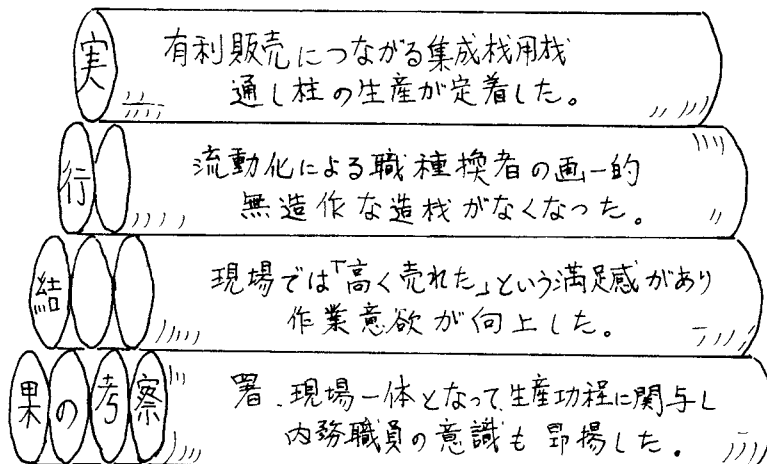 実
有利販売につながる集成材用材
通し柱の生産が定着した。
行
流動化による職種換者の画一的
無造作な造材がなくなった。
結
現場では「高く売れた」という満足感があり
作業意欲が向上した。
果の考察
署、現場一体となって、生産功程に関与し
内務職員の意識も昂揚した。